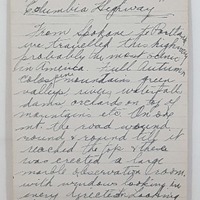 "Columbia Highway"
From Spokane to Portland
we travelled this highway
probably the most scenic
in America. Full autumn
colors in mountains green
valleys rivers waterfall
dams orchards on top of
mountains etc. On one
mt the road wound
round & round till it
reached the top & there
was erected a large
marble observation room
with windows looking in
every direction looking